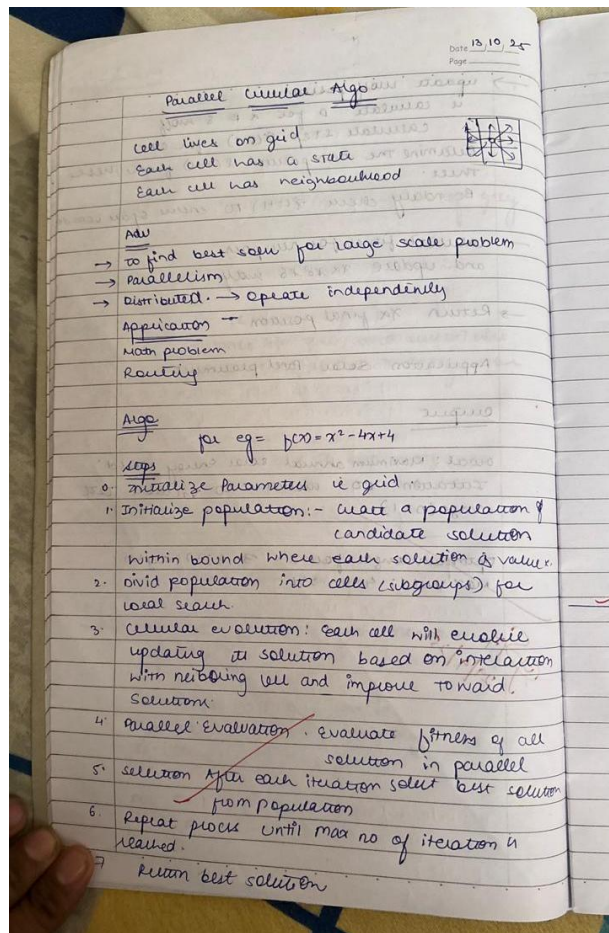 Date 13/10/25
Page
Parallel Cellular Algo
Cell lives on grid
Each cell has a state
Each cell has neighbouhood
Adv
→ To find best solu for large scale problem
→ Parallelism
→ Distributed. → Opeate independenily
Application –
Math problem
Routing
Algo
for eg = f(x) = x² - 4x + 4
Steps
0. Initialize Parameters ie grid
1. Initialize population :- creat a population of
candidate solution
within bound where each solution is value x.
2. Divid population into cells (subgroups) for
local search.
3. Cellular evolution : Each cell with evolve
updating its solution based on interaction
with neiboring cell and improve toward.
Solutions.
4. Parallel Evaluation. Evaluate fitness of all
solution in parallel
5. Selection After each iteration select best solution
from population
6. Repeat process until max no of iteration is
reached.
7 Return best solution